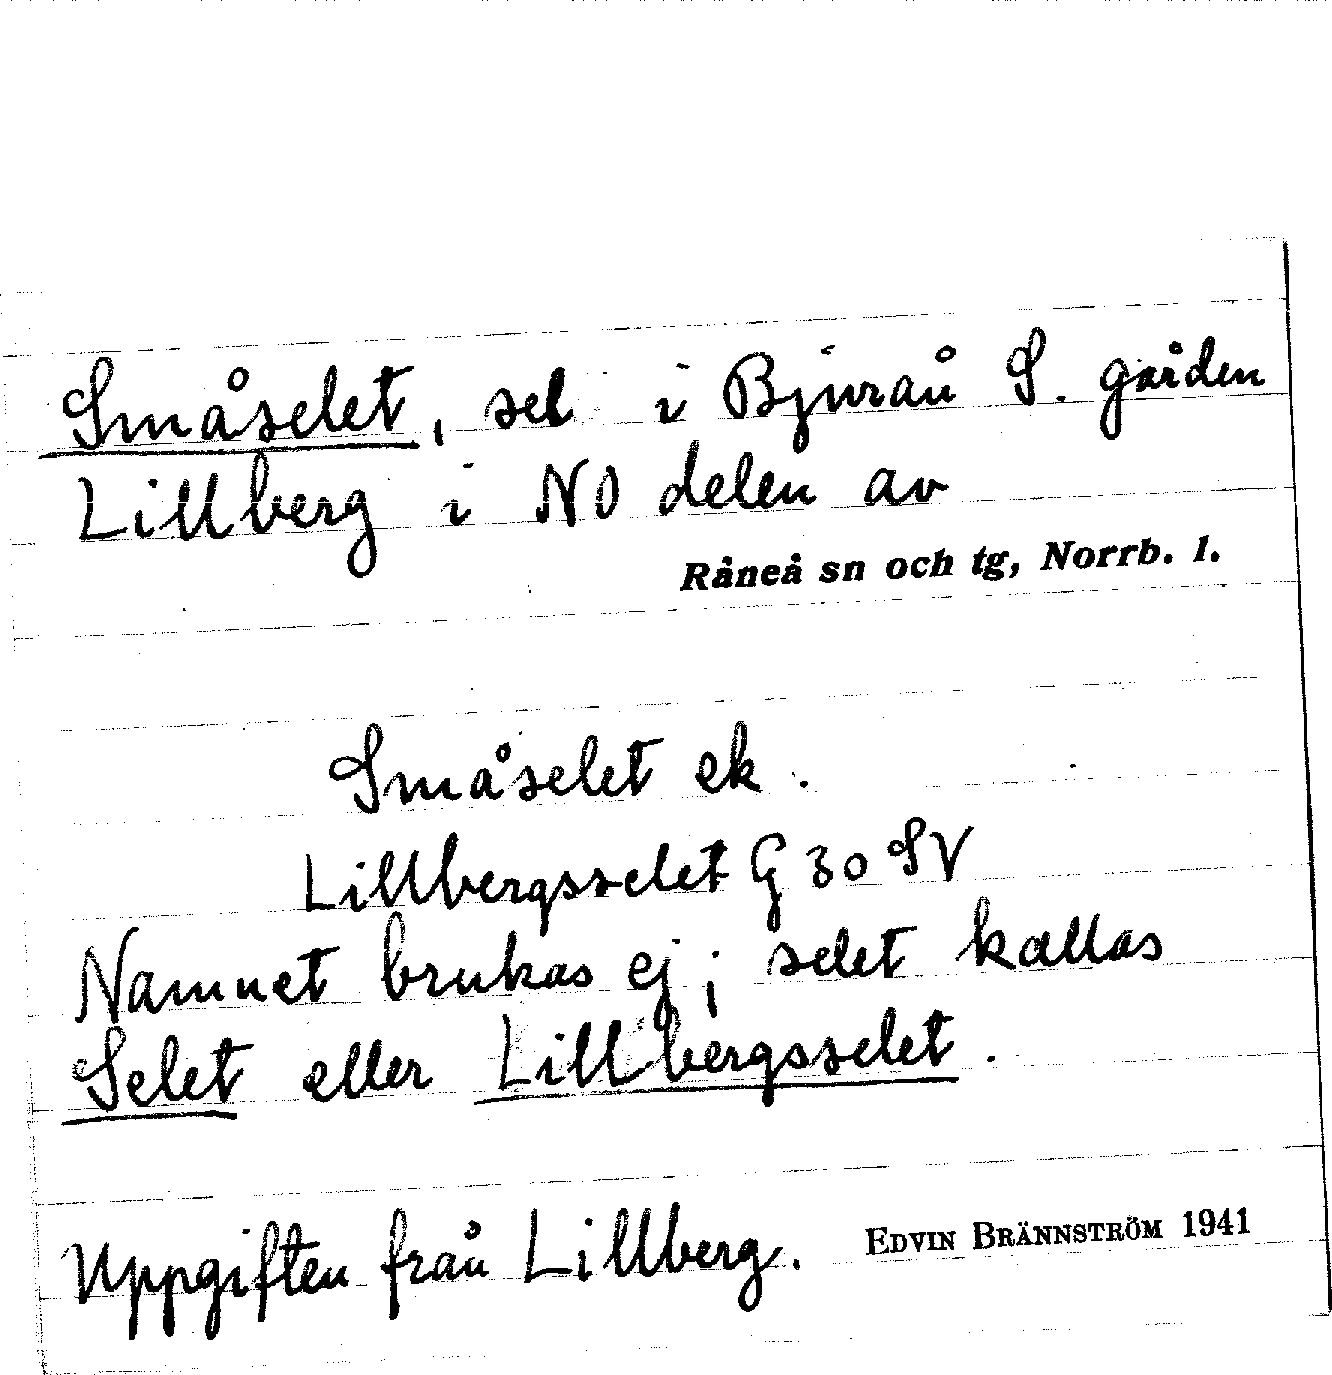 Småselet, sel i Bjuraå S. gården
Lillberg i NO delen av
Råneå sn och tg, Norrb. l.
Småselet ek.
Lillbergsselet G 30 SV
Namnet brukas ej; selet kallas
Selet eller Lillbergsselet.
Uppgiften från Lillberg. EDVIN BRÄNNSTRÖM 1941